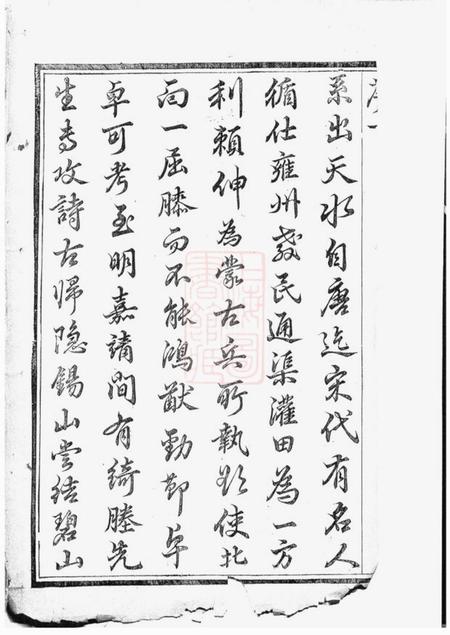 系出天水自唐迄宋代有名人
循仕雍州教民通渠灌田為一方
利賴伸為蒙古兵所執欲使北
向一屈膝而不能鴻猷勁節卓
卓可考至明嘉靖間有綺塍先
生專攻詩古歸隐錫山嘗結碧山